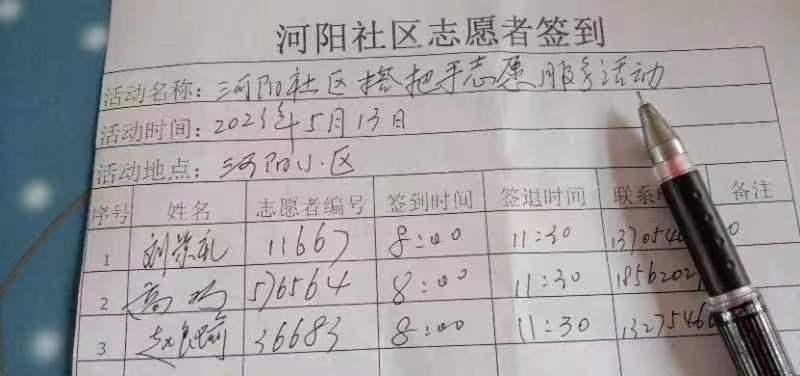 河阳社区志愿者签到
活动名称：河阳社区搭把手志愿服务活动
活动时间：2021年5月13日
活动地点：河阳小区
序号 姓名 志愿者编号 签到时间 签退时间 联系 备注
1 刘荣礼 11667 8:00 11:30 137054 0
2 高 576564 8:00 11:30 1856202
3 赵 36683 8:00 11:30 13275460